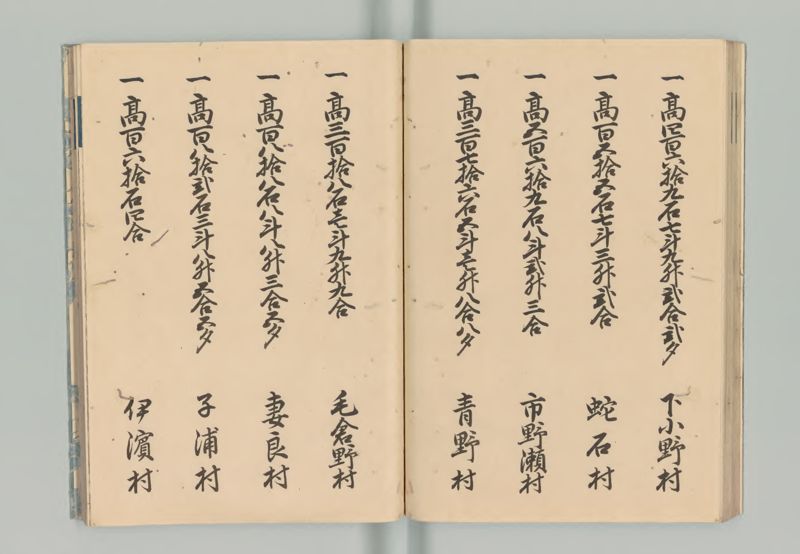 一高四百六拾九石七斗九升弐合弐夕 下小野村
一高百五拾五石七斗三升弐合 蛇石村
一高五百六拾九石八斗弐升三合 市野瀬村
一高三百七拾六石五斗壱升八合八夕 青野村
一高三百拾八石壱斗九升九合 毛倉野村
一高百八拾八石八斗八升三合五夕 妻良村
一高百八拾弐石三斗八升五合五夕 子浦村
一高百六拾石四合 伊濱村